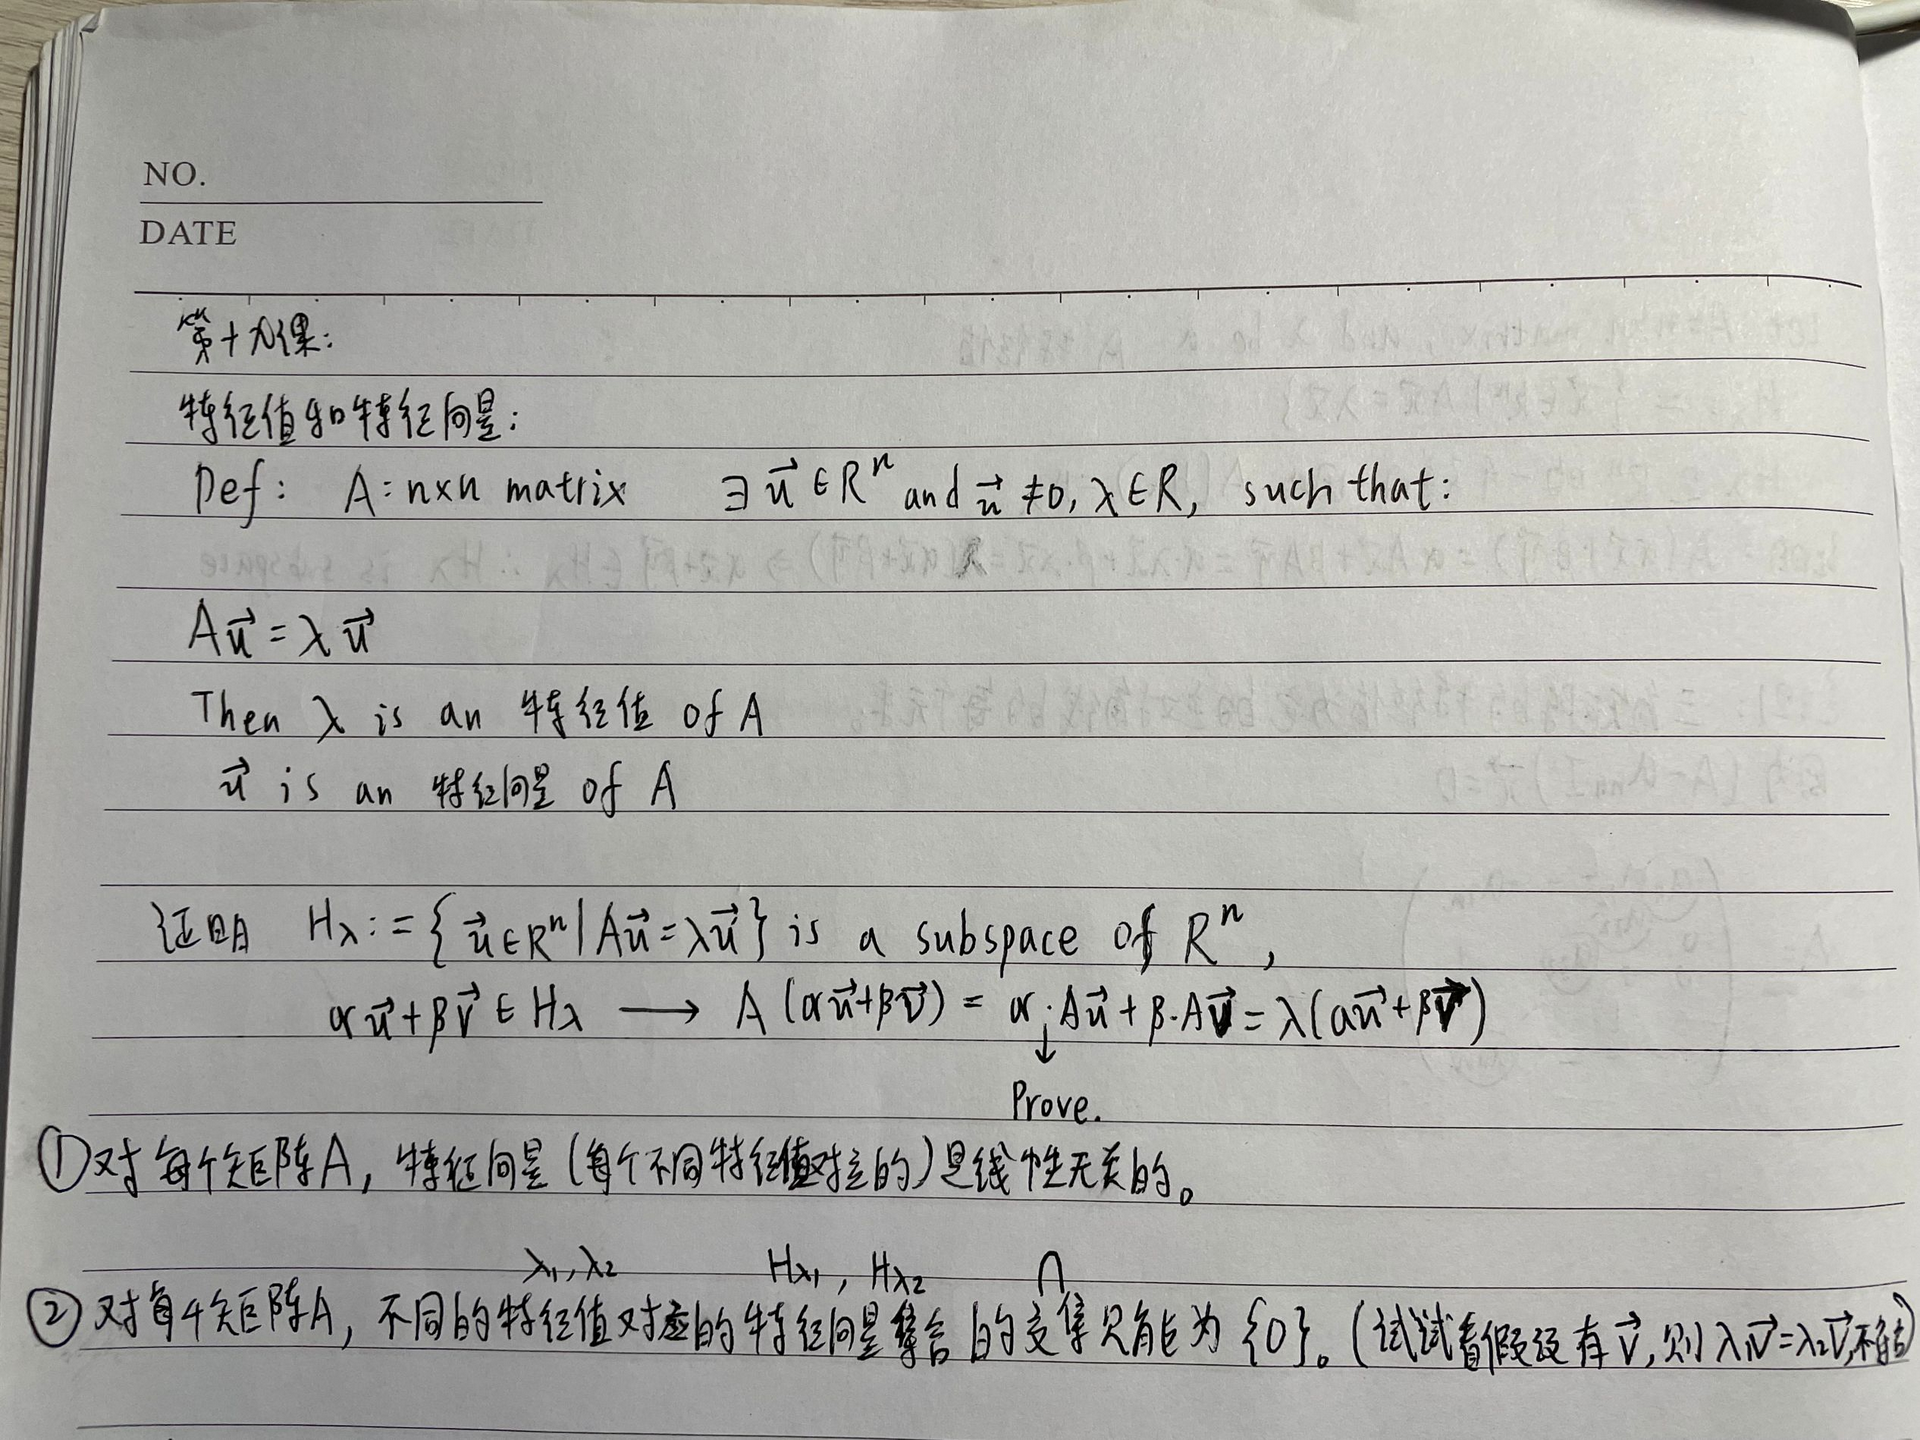 NO.
DATE
第十九课:
特征值和特征向量:
Def: A=n×n matrix ∃ u⃗ ∈ Rⁿ and u⃗ ≠0, λ∈R, such that:
Au⃗ = λu⃗
Then λ is an 特征值 of A
u⃗ is an 特征向量 of A
证明 Hλ := {u⃗∈Rⁿ | Au⃗=λu⃗} is a subspace of Rⁿ,
αu⃗+βv⃗ ∈ Hλ ⟶ A(αu⃗+βv⃗) = α·Au⃗+β·Av⃗ = λ(αu⃗+βv⃗)
↓
Prove.
①对每个矩阵A, 特征向量(每个不同特征值对应的)是线性无关的。
λ₁, λ₂ Hλ₁, Hλ₂ ∩
②对每个矩阵A, 不同的特征值对应的特征向量集合的交集只能为{0}。(试试看假设有v⃗, 则λ₁v⃗=λ₂v⃗,